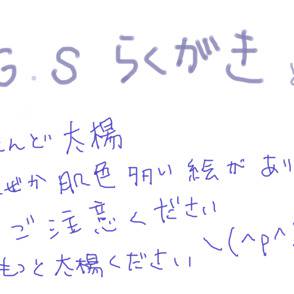 G.S らくがき
んど太陽
ぜか肌色多い絵があり
ご注意ください
もっと太陽ください \(^p^